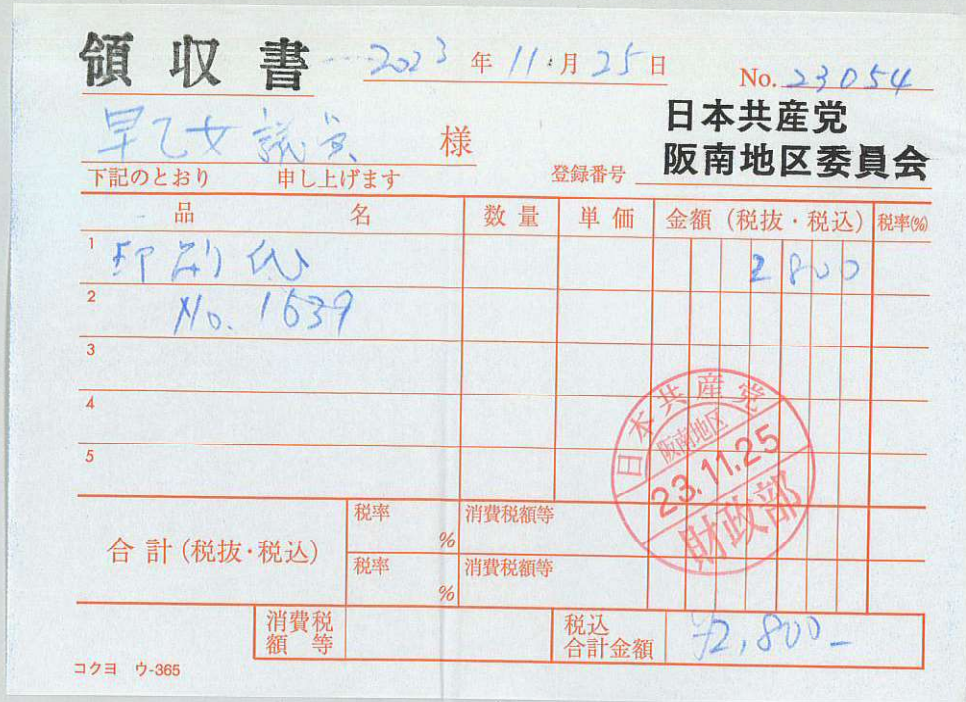 領収書 2023年11月25日
No. 23054
早乙女 議員 様
日本共産党
阪南地区委員会
下記のとおり 申し上げます
登録番号
品名 数量 単価 金額(税抜・税込) 税率(%)
1 印刷代 2800
2 No. 1639
3
4
5
日本共産党
阪南地区
23.11.25
財政部
合計(税抜・税込) 税率 % 消費税額等
税率 % 消費税額等
消費税額等 税込合計金額 ¥2,800-
コクヨ ウ-365